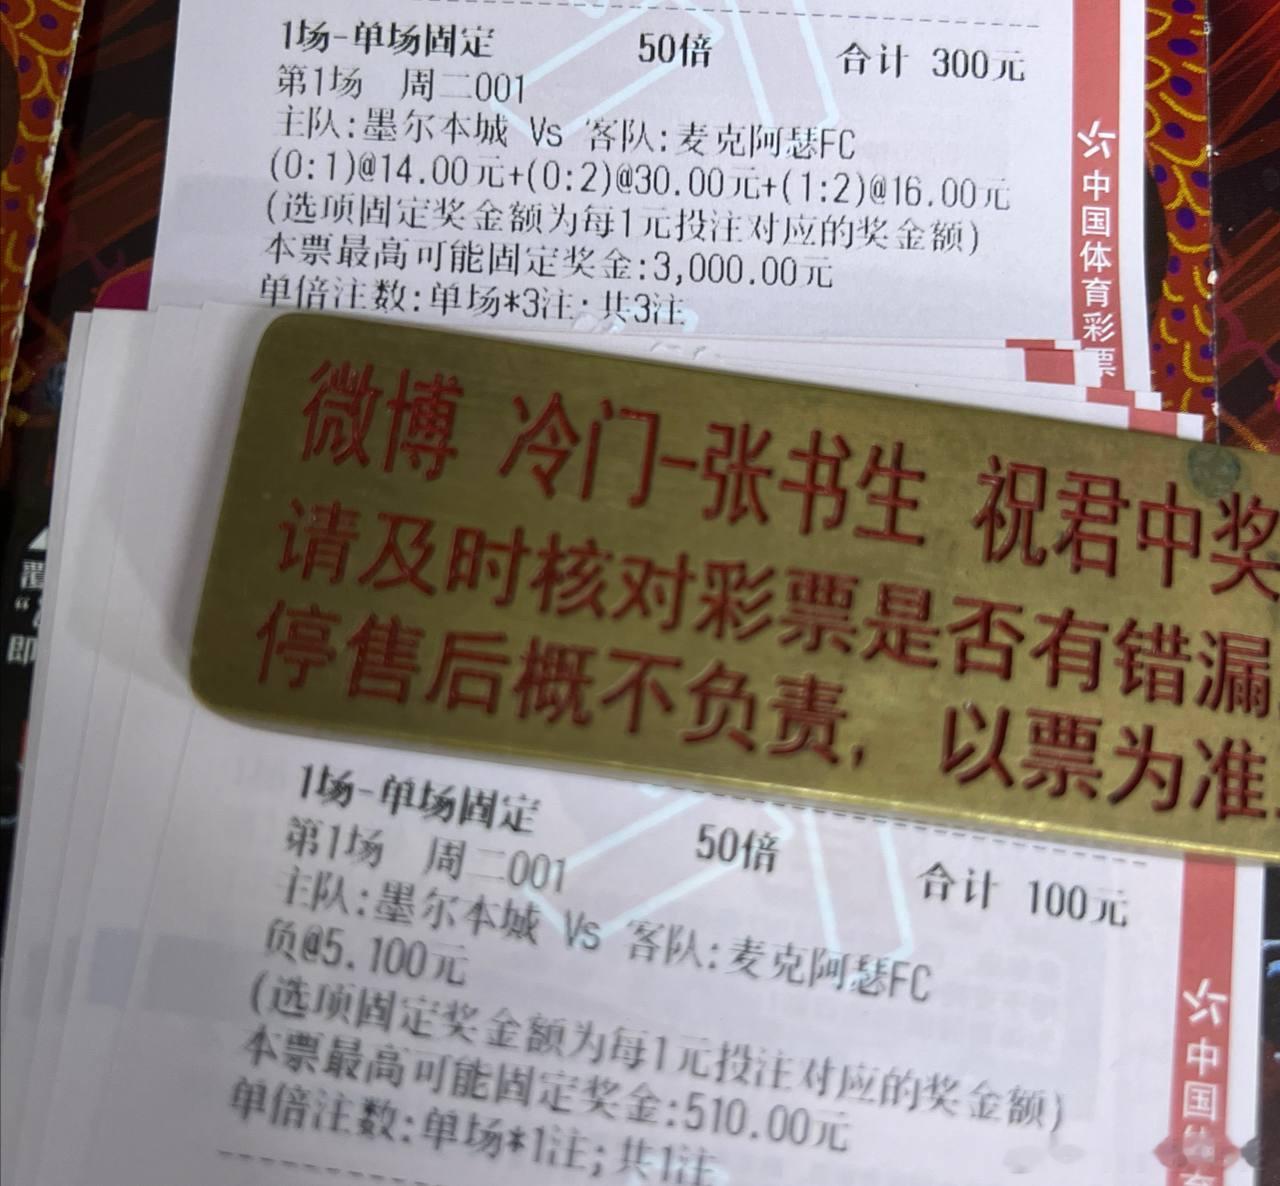 1场-单场固定 50倍 合计 300元
第1场 周二001
主队:墨尔本城 Vs 客队:麦克阿瑟FC
(0:1)@14.00元+(0:2)@30.00元+(1:2)@16.00元
(选项固定奖金额为每1元投注对应的奖金额)
本票最高可能固定奖金:3,000.00元
单倍注数:单场*3注; 共3注
中国体育彩票
微博 冷门-张书生 祝君中奖
请及时核对彩票是否有错漏
停售后概不负责, 以票为准
即
1场-单场固定 50倍 合计 100元
第1场 周二001
主队:墨尔本城 Vs 客队:麦克阿瑟FC
负@5.100元
(选项固定奖金额为每1元投注对应的奖金额)
本票最高可能固定奖金:510.00元
单倍注数:单场*1注; 共1注
中国体育